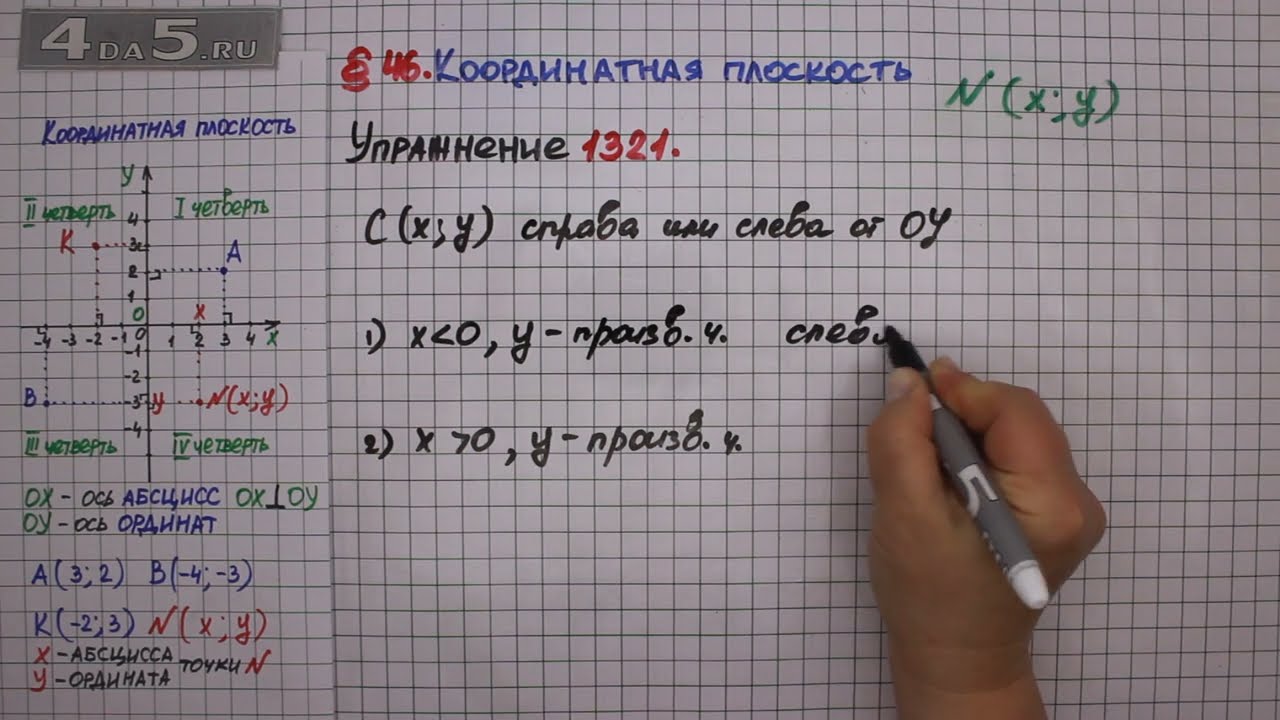 4DA5.RU
§ 46. КООРДИНАТНАЯ ПЛОСКОСТЬ
N (x; y)
Упражнение 1321.
C (x; y) справа или слева от OY
1) x<0, y - произв. ч. слева
2) x >0, y - произв. ч.
КООРДИНАТНАЯ ПЛОСКОСТЬ
y
II четверть
I четверть
4
K
3
A
2
1
0
x
-4 -3 -2 -1 0 1 2 3 4 x
-1
-2
B
-3
y
N(x; y)
-4
III четверть
IV четверть
OX - ось АБСЦИСС OX⊥OY
OY - ось ОРДИНАТ
A(3; 2) B(-4; -3)
K(-2; 3) N(x; y)
X - АБСЦИССА
точки N
y - ОРДИНАТА